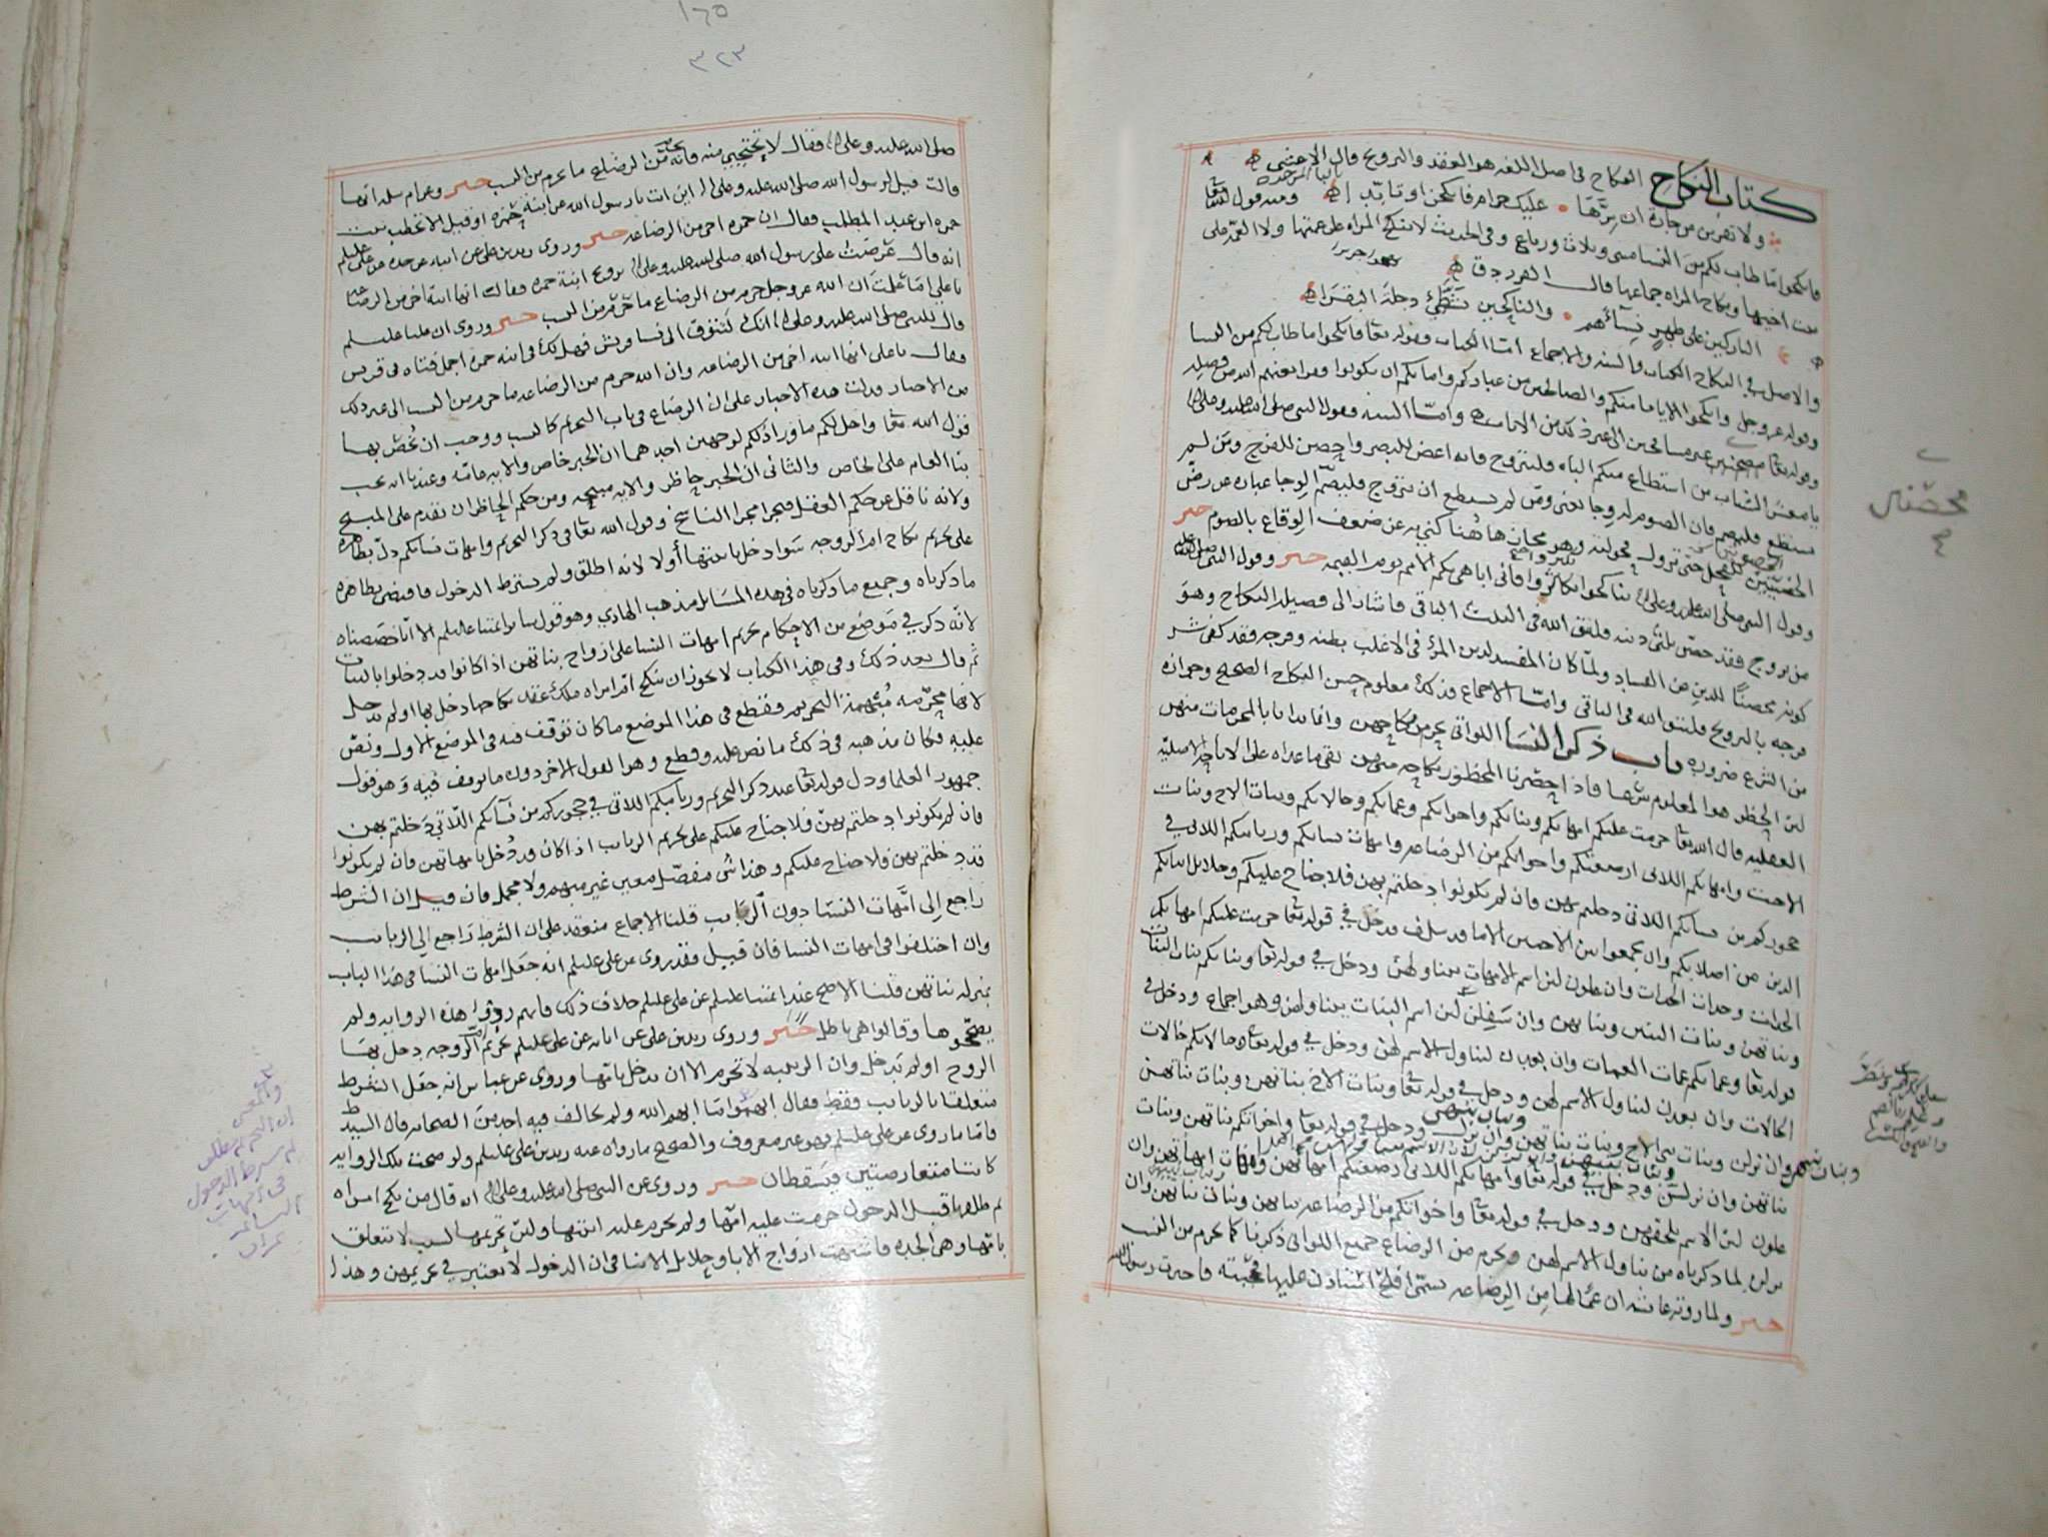 كتاب النكاح النكاح في اصل اللغه هو العقد والتزويج قال الاعشى
ولا تقربن من جارة ان سرها عليك حرام فانكحن او تابدا ومنه قول الله تعا
فانكحوا ما طاب لكم من النسا مثنى وثلاث ورباع وفي الحديث لا تنكح المراه على عمتها ولا العمه على
بنت اخيها ونكاح المراه جماعها قال الفرزدق
التاركين على طهر نسآئهم والناكحين بشطي دجلة البقرا
والاصل في النكاح الكتاب والسنه والاجماع امّا الكتاب فقوله تعا فانكحوا ما طاب لكم من النسا
وقوله عز وجل وانكحوا الايامى منكم والصالحين من عبادكم وامائكم ان يكونوا فقرا يغنهم الله من فضله
وقوله تعا محصنين غير مسافحين الى غير ذلك من الايات وامّا السنه فقول النبي صلى الله عليه وعلى اله
يا معشر الشباب من استطاع منكم الباه فليتزوج فانه اغض للبصر واحصن للفرج ومن لم
يستطع فليصم فان الصوم له وجا يعني ومن لم يستطع ان يتزوج فليصم
وقول النبي صلى الله عليه وعلى اله تناكحوا تكاثروا فاني اباهي بكم الامم يوم القيمه خبر وقول النبي صلى الله عليه
من تزوج فقد حصّن ثلثي دينه فليتق الله في الثلث الباقي فاشار الى فضيله النكاح وهو
كونه تحصينًا للدين من الفساد ولمّا كان المفسد لدين المرء في الاغلب بطنه وفرجه فقد كفى شر
فرجه بالتزويج فليتق الله في الباقي وامّا الاجماع فذلك معلوم حسن النكاح الصحيح وجوازه
من الشرع ضروره باب ذكر النسا اللواتي يحرم نكاحهن وانما بدانا بالمحرمات منهن
لان الحظر هو المعلوم شرعا فاذا احصرنا المحظور نكاحه منهن بقى ما عداه على الاباحه الاصليه
العقليه قال الله تعا حرمت عليكم امهاتكم وبناتكم واخواتكم وعماتكم وخالاتكم وبنات الاخ وبنات
الاخت وامهاتكم اللاتي ارضعنكم واخواتكم من الرضاعه وامهات نسائكم وربائبكم اللاتي في
حجوركم من نسائكم اللاتي دخلتم بهن فان لم تكونوا دخلتم بهن فلا جناح عليكم وحلائل ابنائكم
الذين من اصلابكم وان تجمعوا بين الاختين الا ما قد سلف فدخل في قوله تعا حرمت عليكم امهاتكم
الجدات وجدات الجدات وان علون لان اسم الامهات يتناولهن ودخل في قوله تعا وبناتكم بنات البنات
وبناتهن وبنات البنين وبناتهن وان سفلن لان اسم البنات يتناولهن وهو اجماع ودخل في
قوله تعا وعماتكم عمات العمات وان بعدن لتناول الاسم لهن ودخل في قوله تعا وخالاتكم خالات
الخالات وان بعدن لتناول الاسم لهن ودخل في قوله تعا وبنات الاخ بناتهن وبنات بناتهن
علون لان الاسم يلحقهن ودخل في قوله تعا واخواتكم من الرضاعه بناتهن وبنات بناتهن وان
نزلن لما ذكرناه من تناول الاسم لهن ويحرم من الرضاع جميع اللواتي ذكرنا كما يحرم من النسب
خبر ولما روته عائشه ان عمًا لها من الرضاعه يسمّى افلح استاذن عليها فحجبته فاخبرت رسول الله
محصنين
١٦٥
٣٢٣
صلى الله عليه وعلى اله فقال لا تحتجبي منه فانه يحرم من الرضاع ما يحرم من النسب خبر وعن ام سلمه انها
قالت قيل لرسول الله صلى الله عليه وعلى اله اين انت يا رسول الله عن ابنة حمزه او قيل الا تخطب بنت
حمزه ابن عبد المطلب فقال ان حمزه اخي من الرضاعه خبر وروى زيد بن علي عن ابيه عن جده عن علي عليلم
انه قال عرضت على رسول الله صلى الله عليه وعلى اله تزويج ابنة حمزه فقال انها ابنة اخي من الرضاعه
يا علي امَا علمت ان الله عز وجل حرم من الرضاع ما حرّم من النسب خبر وروى ان عليا عليلم
قال للنبي صلى الله عليه وعلى اله انك لتتوق الى نسا قريش فهل لك في ابنه حمزه اجمل فتاه في قريش
فقال يا علي انها ابنه اخي من الرضاعه وان الله حرم من الرضاعه ما حرم من النسب الى غير ذلك
من الاخبار فدلت هذه الاخبار على ان الرضاع في باب التحريم كالنسب ووجب ان نخصّ بها
قول الله تعا واحل لكم ما ورا ذلكم لوجهين احدهما ان الخبر خاص والايه عامّه وعندنا انه يجب
بنا العام على الخاص والثاني ان الخبر حاظر والايه مبيحه ومن حكم الحاظر ان يقدم على المبيح
ولانه ناقل عن حكم العقل فجرا مجرا الناسخ وقول الله تعا في ذكر التحريم وامهات نسائكم دلّ بظاهره
على تحريم نكاح ام الزوجه سَوا دخل بابنتها أو لا لانه اطلق ولم يشترط الدخول فاقتضى بظاهره
ما ذكرناه وجميع ما ذكرناه في هذه المسَائل مذهب الهادي وهو قول سائر ائمتنا عليلم الا انّا خصصناه
لانّه ذكر في مَوضع من الاحكام تحريم امهات النسا على ازواج بناتهن اذا كانوا قد دخلوا بالبنات
ثم قال بعد ذلك وفي هذا الكتاب لا يجوز ان ينكح ام امراه ملك عقد نكاحها دخل بها او لم يدخل
لانها محرّمه مُبْهَمة التحريم فقطع في هذا الموضع ما كان توقف فيه في الموضع الاول ونصّ
عليه فكان مذهبه في ذلك ما نص عليه وقطع وهو القول الاخر دون ما توقف فيه وَهو قول
جمهور العلما ودل قوله تعا عند ذكر التحريم وربائبكم اللاتي في حجوركم من نسآئكم اللاتي دخلتم بهن
فان لم تكونوا دخلتم بهنّ فلا جناح عليكم على تحريم الربائب اذا كان قد دُخل بامهاتهن فان لم يكونوا
قد دخلتم بهن فلا جناح عليكم وهذا شى مفصّل معين غير مبهم ولا مجمل فان قيل ان الشرط
راجع إلى امّهات النسَا دون الربائب قلنا الاجماع منعقد على ان الشرط راجع الي الربائب
وان اختلفوا في امهات النسا فان قيل فقد روى عن علي عليلم انه جعل امهات النسا في هذا الباب
بمنزله بناتهن قلنا الاصح عند ائمتنا عليلم عن علي عليلم خلاف ذلك فانهم رووا هذه الروايه ولم
يصححوها وقالوا هي باطل خبر وروى زيد بن علي عن ابائه عن علي عليلم تحريم ام الزوجه دخل بها
الزوج او لم يَدخل وان الربيبه لا تحرم الا ان يدخل بامّها وروى عن عباس انه جعل الشرط
متعلقا بالربائب فقط فقال ابهموا ما ابهم الله ولم يخالف فيه احد من الصحابه قال السيد
فامّا ما روى عن علي عليلم فهو غير معروف والصحيح ما رواه عنه زيد بن علي عليلم ولو صحت تلك الروايه
كانتا متعارضتين فيسقطان خبر وروى عن النبي صلى الله عليه وعلى اله انه قال من نكح امراه
ثم طلقها قبل الدخول حرمت عليه امّها ولم تحرم عليه ابنتها ولان تحريمها لسبب لا تتعلق
بامّها وهي الجده فاشبهت ازواج الابا وحلائل الابنا في ان الدخول لا يعتبر في تحريمهن وهذا